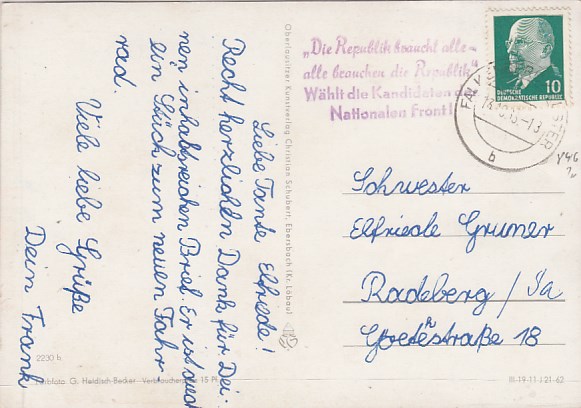 „Die Republik braucht alle –
alle brauchen die Republik"
Wählt die Kandidaten
Nationalen Front!
DEUTSCHE
DEMOKRATISCHE REPUBLIK
10
b
Liebe Tante Elfriede!
Recht herzlichen Dank für Dei-
nen inhaltsreichen Brief. Er ist auch
ein Stück zum neuen Fahr-
rad.
Viele liebe Grüße
Dein Frank
Oberlausitzer Kunstverlag Christian Schubert, Ebersbach (Kr. Löbau)
Schwester
Elfriede Gruner
Radeberg / Sa
Goethestraße 18
2230 b
Farbfoto G. Herdisch-Becker Verbraucherpreis 15 Pf
III-19-11 J 21-62